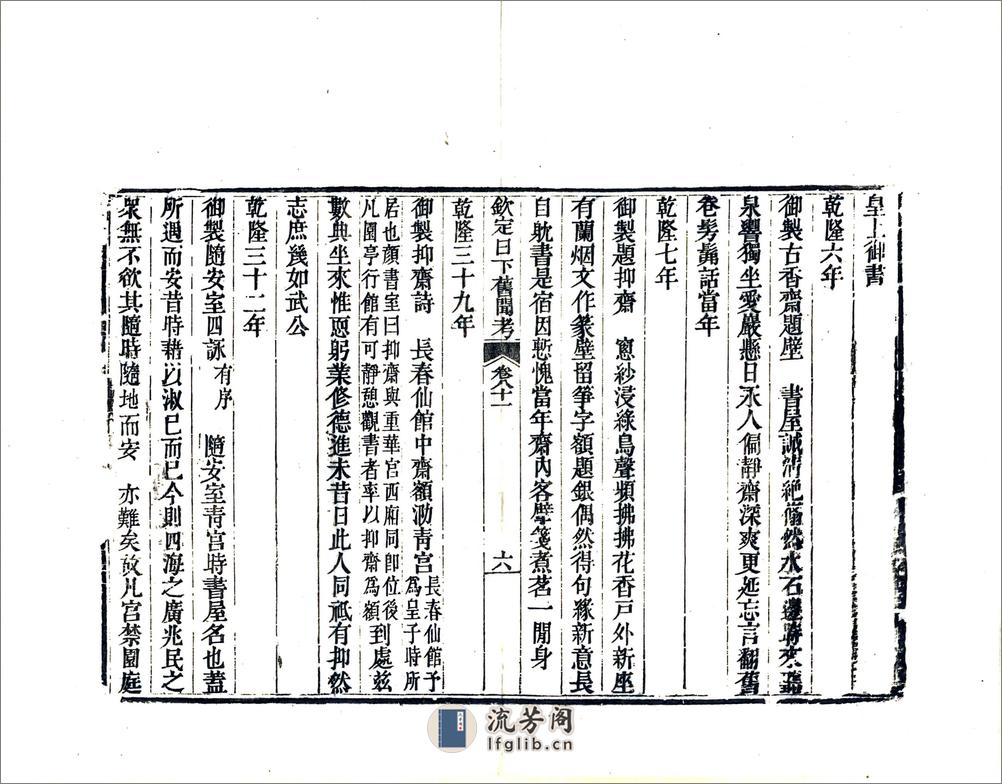 皇上御書
乾隆六年
御製古香齋題壁　書屋誠清絶翛然水石邊踈來聽
泉響獨坐愛巖懸日永人偏靜齋深爽更延忘言翻舊
卷髣髴話當年
乾隆七年
御製題抑齋　窻紗浸綠鳥聲頻拂拂花香戸外新座
有蘭烟文作篆壁留箏字額題銀偶然得句緣新意長
自躭書是宿因慙愧當年齋內客擘箋煮茗一閒身
欽定日下舊聞考　卷八十一　六
乾隆三十九年
御製抑齋詩　長春仙館中齋額泐青宮長春仙館予爲皇子時所
居也顔書室曰抑齋與重華宮西廂同卽位後凡園亭行館有可靜憩觀書者率以抑齋爲額到處兹
數典坐來惟恧躬業修德進未昔日此人同祇有抑然
志庶幾如武公
乾隆三十二年
御製隨安室四詠有序　隨安室青宮時書屋名也蓋
所遇而安昔時藉以淑已而已今則四海之廣兆民之
衆無不欲其隨時隨地而安　亦難矣故凡宮禁園庭
流芳阁
lfglib.cn